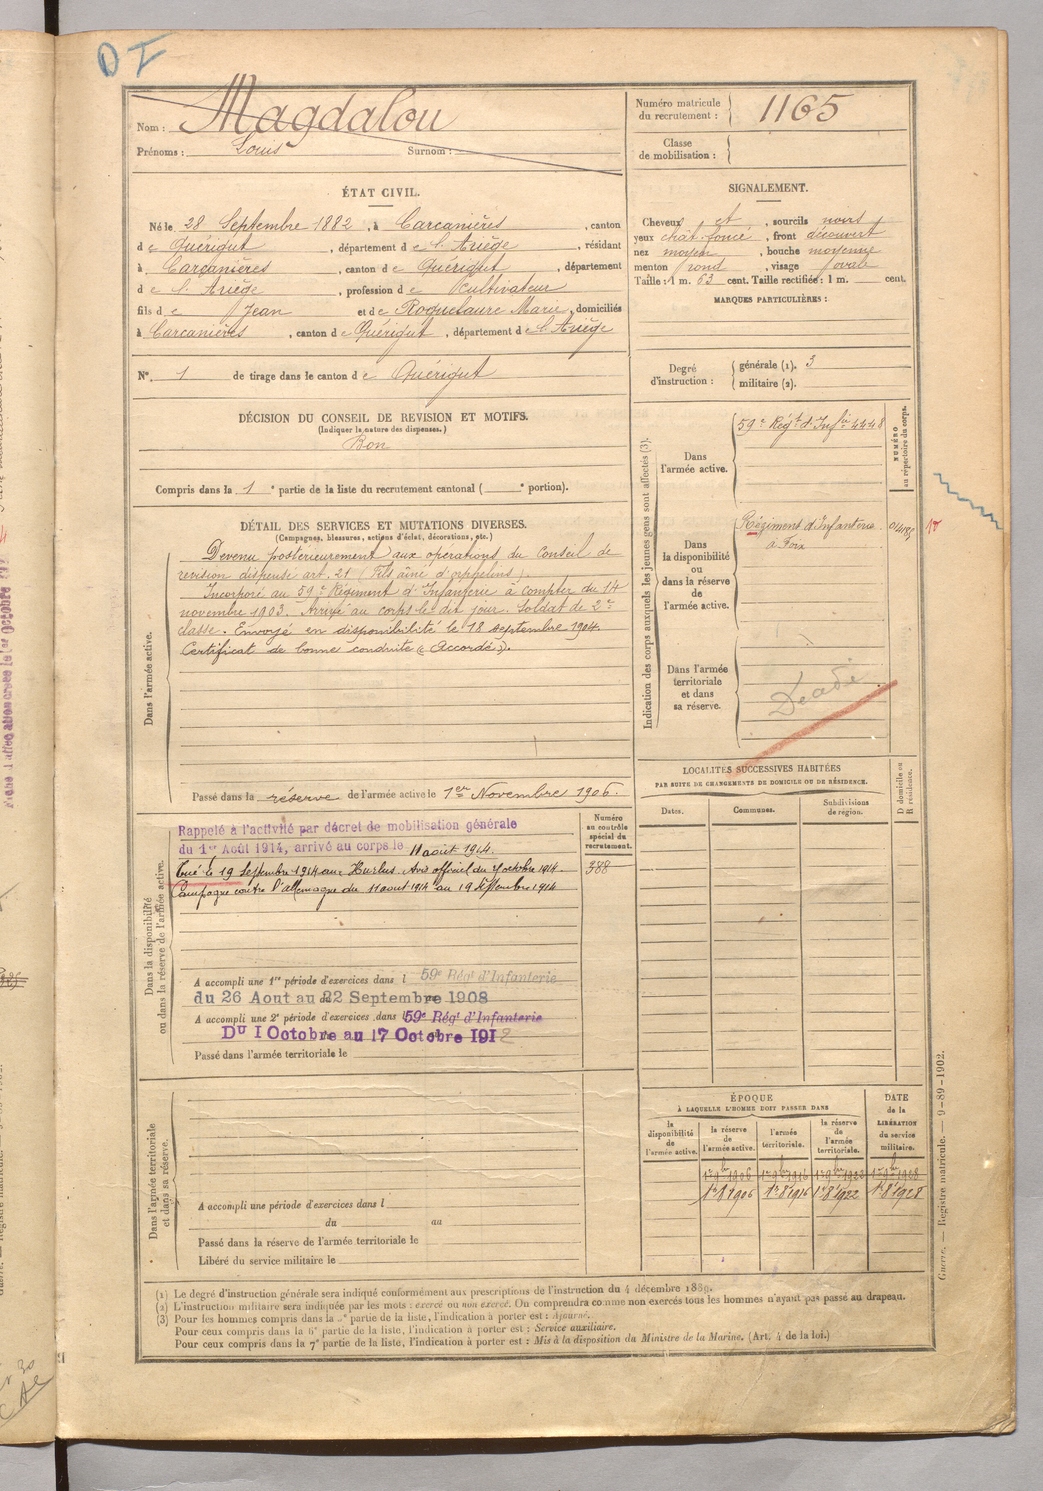 DI
Nom : Magdalou
Prénoms : Louis Surnom :
Numéro matricule du recrutement : 1165
Classe de mobilisation :
ÉTAT CIVIL.
Né le 28 Septembre 1882, à Carcanières, canton
de Quérigut, département de l'Ariège, résidant
à Carcanières, canton de Quérigut, département
de l'Ariège, profession de cultivateur
fils de Jean et de Roquelaure Marie, domiciliés
à Carcanières, canton de Quérigut, département de l'Ariège
N° 1 de tirage dans le canton de Quérigut
SIGNALEMENT.
Cheveux et, sourcils noirs
yeux chat. foncé, front découvert
nez moyen, bouche moyenne
menton rond, visage ovale
Taille : 1 m. 63 cent. Taille rectifiée : 1 m. cent.
MARQUES PARTICULIÈRES :
Degré d'instruction : générale (1). 3
militaire (2).
DÉCISION DU CONSEIL DE REVISION ET MOTIFS.
(Indiquer la nature des dispenses.)
Bon
Compris dans la 1e partie de la liste du recrutement cantonal ( e portion).
DÉTAIL DES SERVICES ET MUTATIONS DIVERSES.
(Campagnes, blessures, actions d'éclat, décorations, etc.)
Dans l'armée active.
Devenu postérieurement aux opérations du Conseil de
revision dispensé art. 21 (Fils aîné d'orphelins).
Incorporé au 59e Régiment d'Infanterie à compter du 14
novembre 1903. Arrivé au corps le dit jour. Soldat de 2e
classe. Envoyé en disponibilité le 18 septembre 1904.
Certificat de bonne conduite « Accordé ».
Passé dans la réserve de l'armée active le 1er Novembre 1906.
Indication des corps auxquels les jeunes gens sont affectés (3).
NUMÉRO au répertoire du corps.
Dans l'armée active.
59e Régt d'Infie 4448
Dans la disponibilité ou dans la réserve de l'armée active.
Régiment d'Infanterie
à Foix
Dans l'armée territoriale et dans sa réserve.
LOCALITÉS SUCCESSIVES HABITÉES
PAR SUITE DE CHANGEMENTS DE DOMICILE OU DE RÉSIDENCE.
Dates. Communes. Subdivisions de région. D domicile ou R résidence.
Dans la disponibilité ou dans la réserve de l'armée active.
Numéro au contrôle spécial du recrutement.
388
Rappelé à l'activité par décret de mobilisation générale
du 1er Août 1914, arrivé au corps le 11 août 1914.
Tué le 19 Septembre 1914 au Hurlus. Avis officiel du octobre 1914.
Campagne contre l'allemagne du 11 août 1914 au 19 Septembre 1914
A accompli une 1re période d'exercices dans l 59e Régt d'Infanterie
du 26 Aout au 22 Septembre 1908
A accompli une 2e période d'exercices dans l 59e Régt d'Infanterie
DU 1 Octobre au 17 Octobre 1912
Passé dans l'armée territoriale le
Dans l'armée territoriale et dans sa réserve.
A accompli une période d'exercices dans l
du au
Passé dans la réserve de l'armée territoriale le
Libéré du service militaire le
ÉPOQUE
À LAQUELLE L'HOMME DOIT PASSER DANS
la disponibilité de l'armée active. la réserve de l'armée active. l'armée territoriale. la réserve de l'armée territoriale.
DATE de la LIBÉRATION du service militaire.
1er 9bre 1906 1er 9bre 1916 1er 9bre 1922 1er 9bre 1928
1er 11 1906 1er 8 1916 1er 8 1922 1er 8 1928
(1) Le degré d'instruction générale sera indiqué conformément aux prescriptions de l'instruction du 4 décembre 1889.
(2) L'instruction militaire sera indiquée par les mots : exercé ou non exercé. On comprendra comme non exercés tous les hommes n'ayant pas passé au drapeau.
(3) Pour les hommes compris dans la partie de la liste, l'indication à porter est : Ajourné.
Pour ceux compris dans la 6e partie de la liste, l'indication à porter est : Service auxiliaire.
Pour ceux compris dans la 7e partie de la liste, l'indication à porter est : Mis à la disposition du Ministre de la Marine. (Art. 4 de la loi.)
Guerre. — Registre matricule. — 9-89-1902.